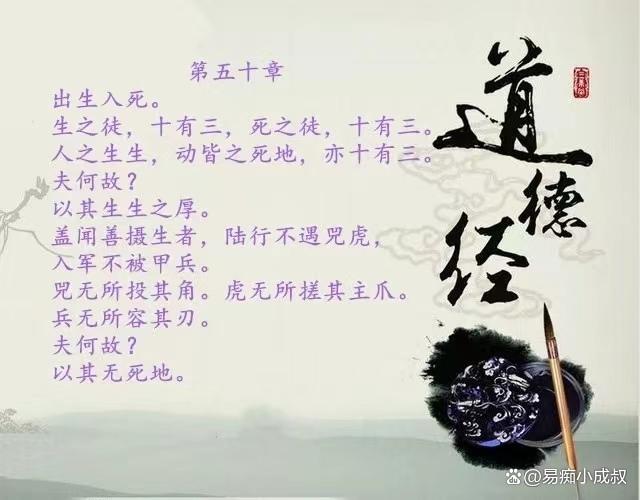 第五十章
出生入死。
生之徒，十有三，死之徒，十有三。
人之生生，动皆之死地，亦十有三。
夫何故？
以其生生之厚。
盖闻善摄生者，陆行不遇咒虎，
入军不被甲兵。
咒无所投其角。虎无所搓其主爪。
兵无所容其刃。
夫何故？
以其无死地。
道德经
@易痴小成叔